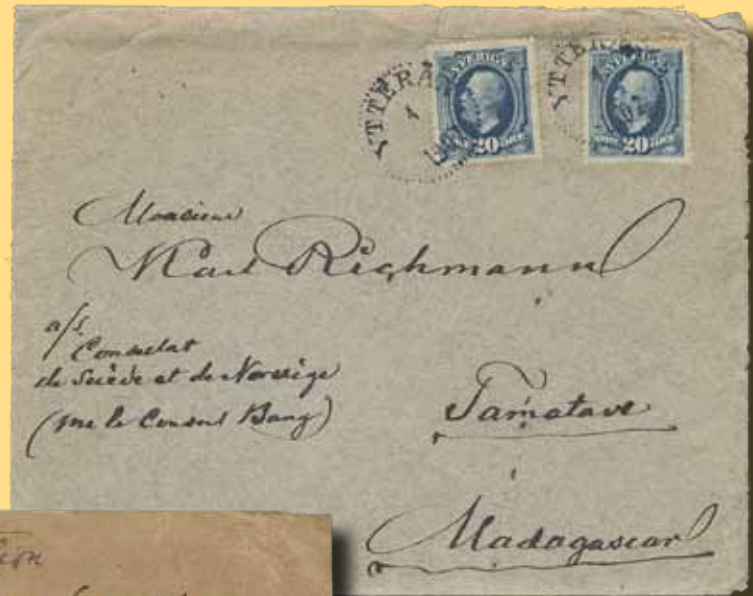 SVERIGE SVERIGE
20 20
Monsieur
Karl Richmann
a/s.
Consulat
de Suède et de Norvège
(Mr le Consul Bang)
Tamatave
Madagascar